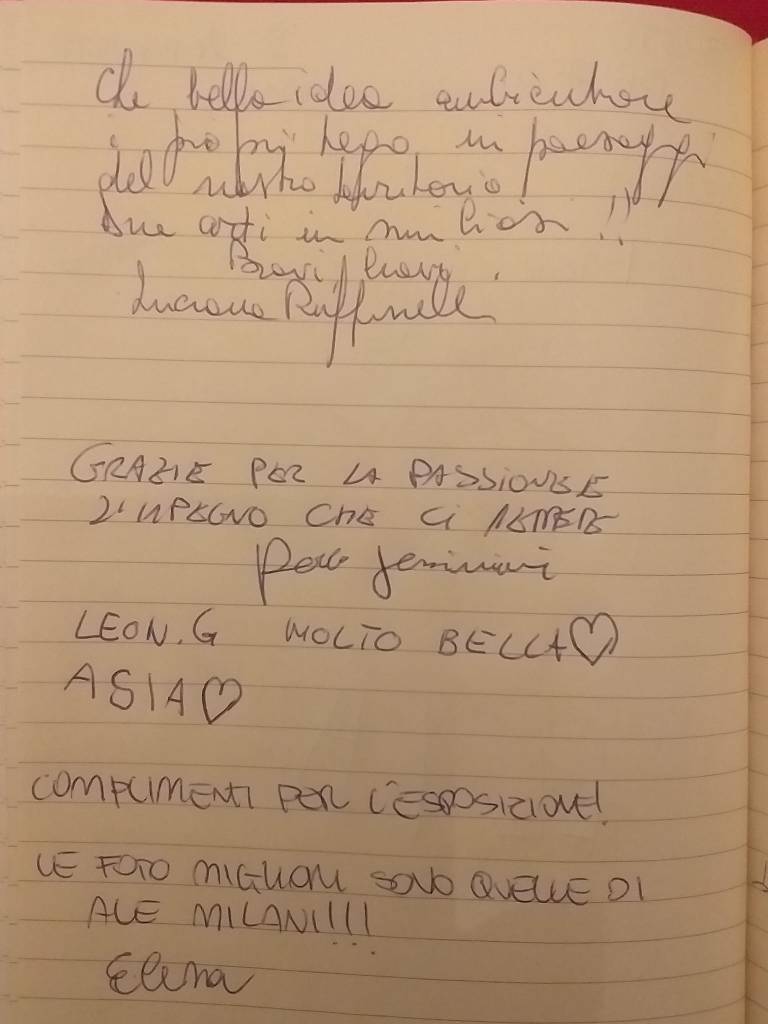 Che bella idea ambientare
i in paesaggi
del nostro territorio!
Due arti in !!
Bravi, bravi.
Luciana Ruffinelli
GRAZIE PER LA PASSIONE E
L'IMPEGNO CHE CI METTETE
LEON.G MOLTO BELLA♡
ASIA♡
COMPLIMENTI PER L'ESPOSIZIONE!
LE FOTO MIGLIORI SONO QUELLE DI
ALE MILANI!!!!
Elena